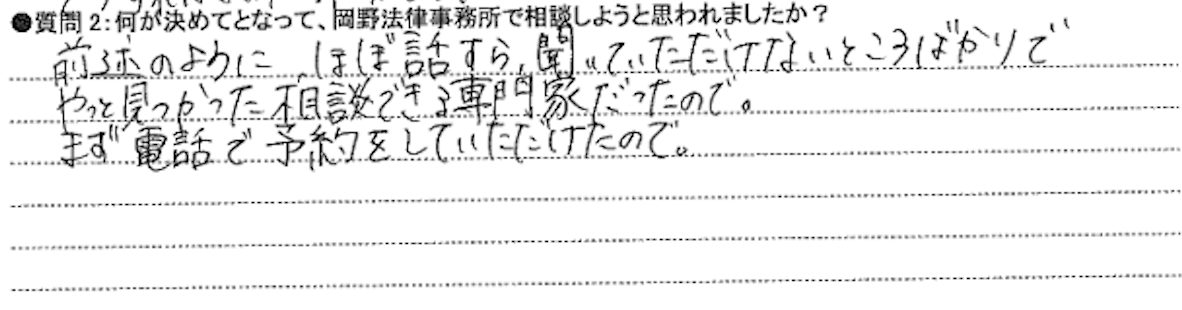 ●質問2:何が決めてとなって、岡野法律事務所で相談しようと思われましたか?
前述のように、ほぼ話すら、聞いていただけないところばかりで
やっと見つかった相談できる専門家だったので。
まず電話で予約をしていただけたので。